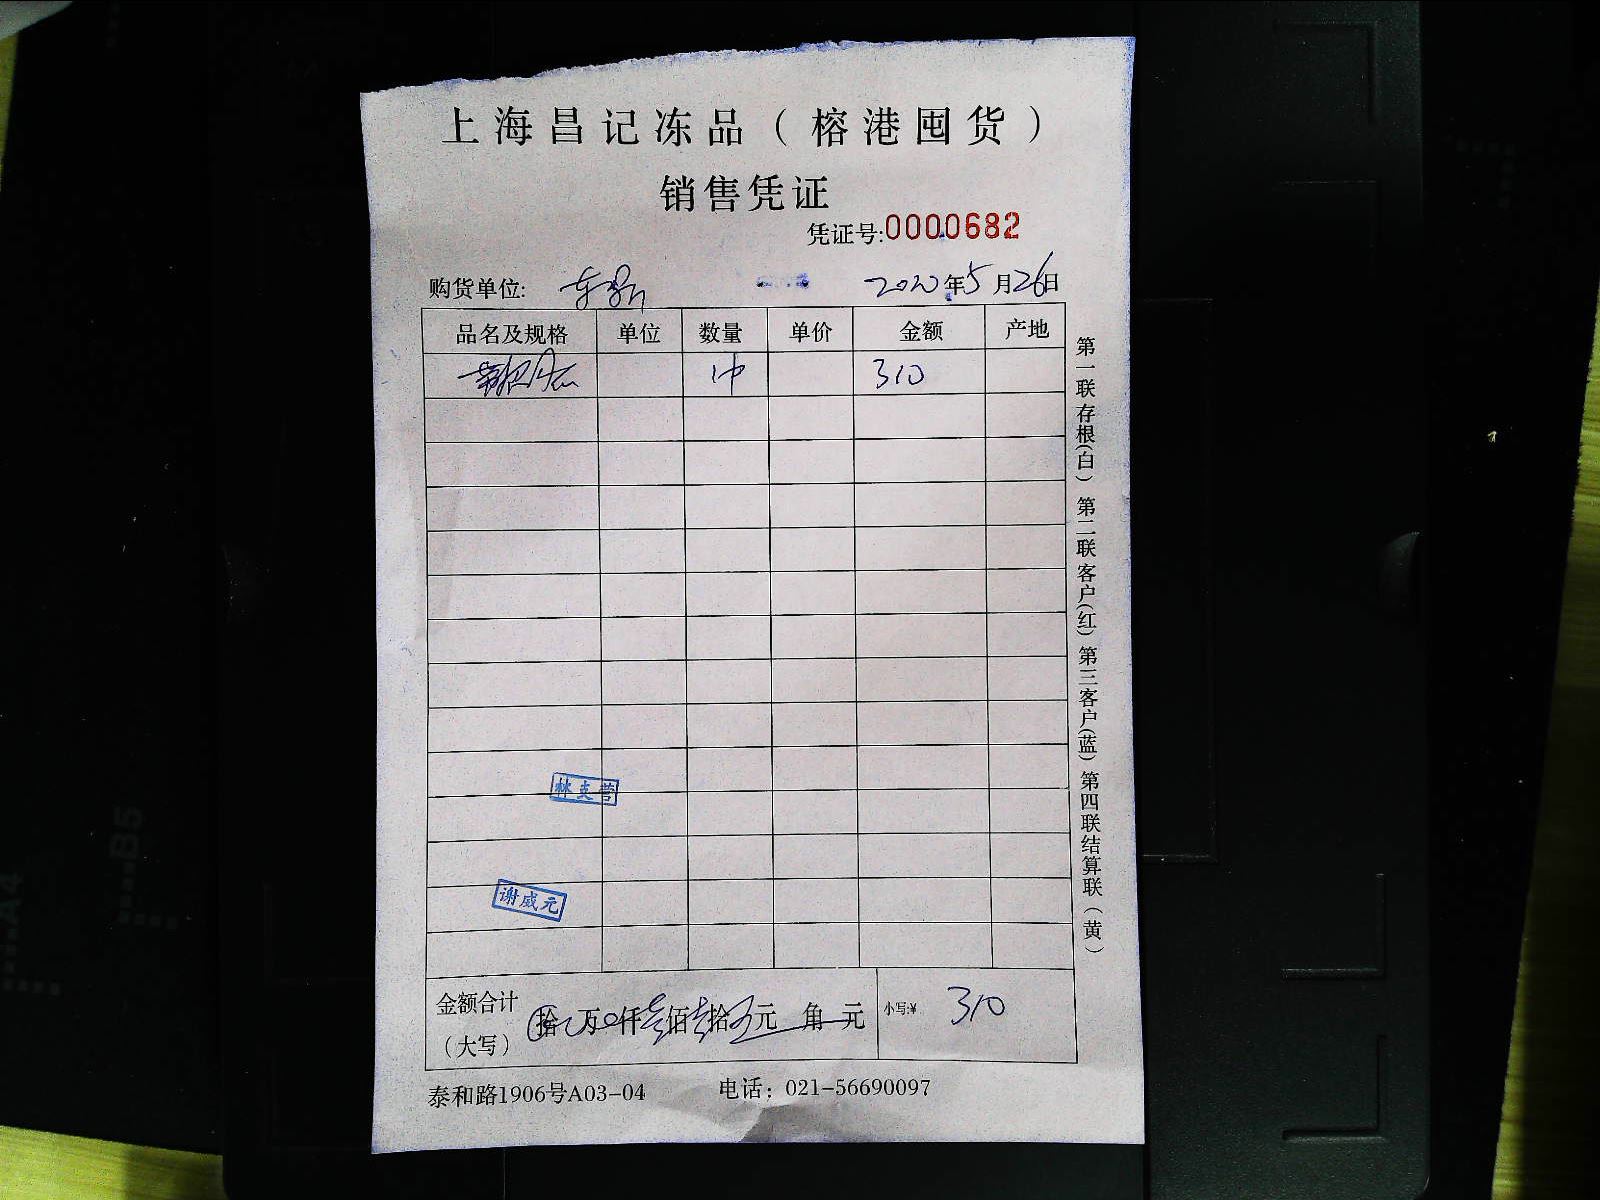 上海昌记冻品（榕港囤货）
销售凭证
凭证号:0000682
购货单位:
2020年5月26日
品名及规格 单位 数量 单价 金额 产地
1件 310
林克营
谢威元
金额合计（大写） 拾 万 仟叁佰壹拾 元 角 元 小写:¥ 310
泰和路1906号A03-04 电话：021-56690097
第一联存根(白) 第二联客户(红) 第三客户(蓝) 第四联结算联（黄）
A4
B5